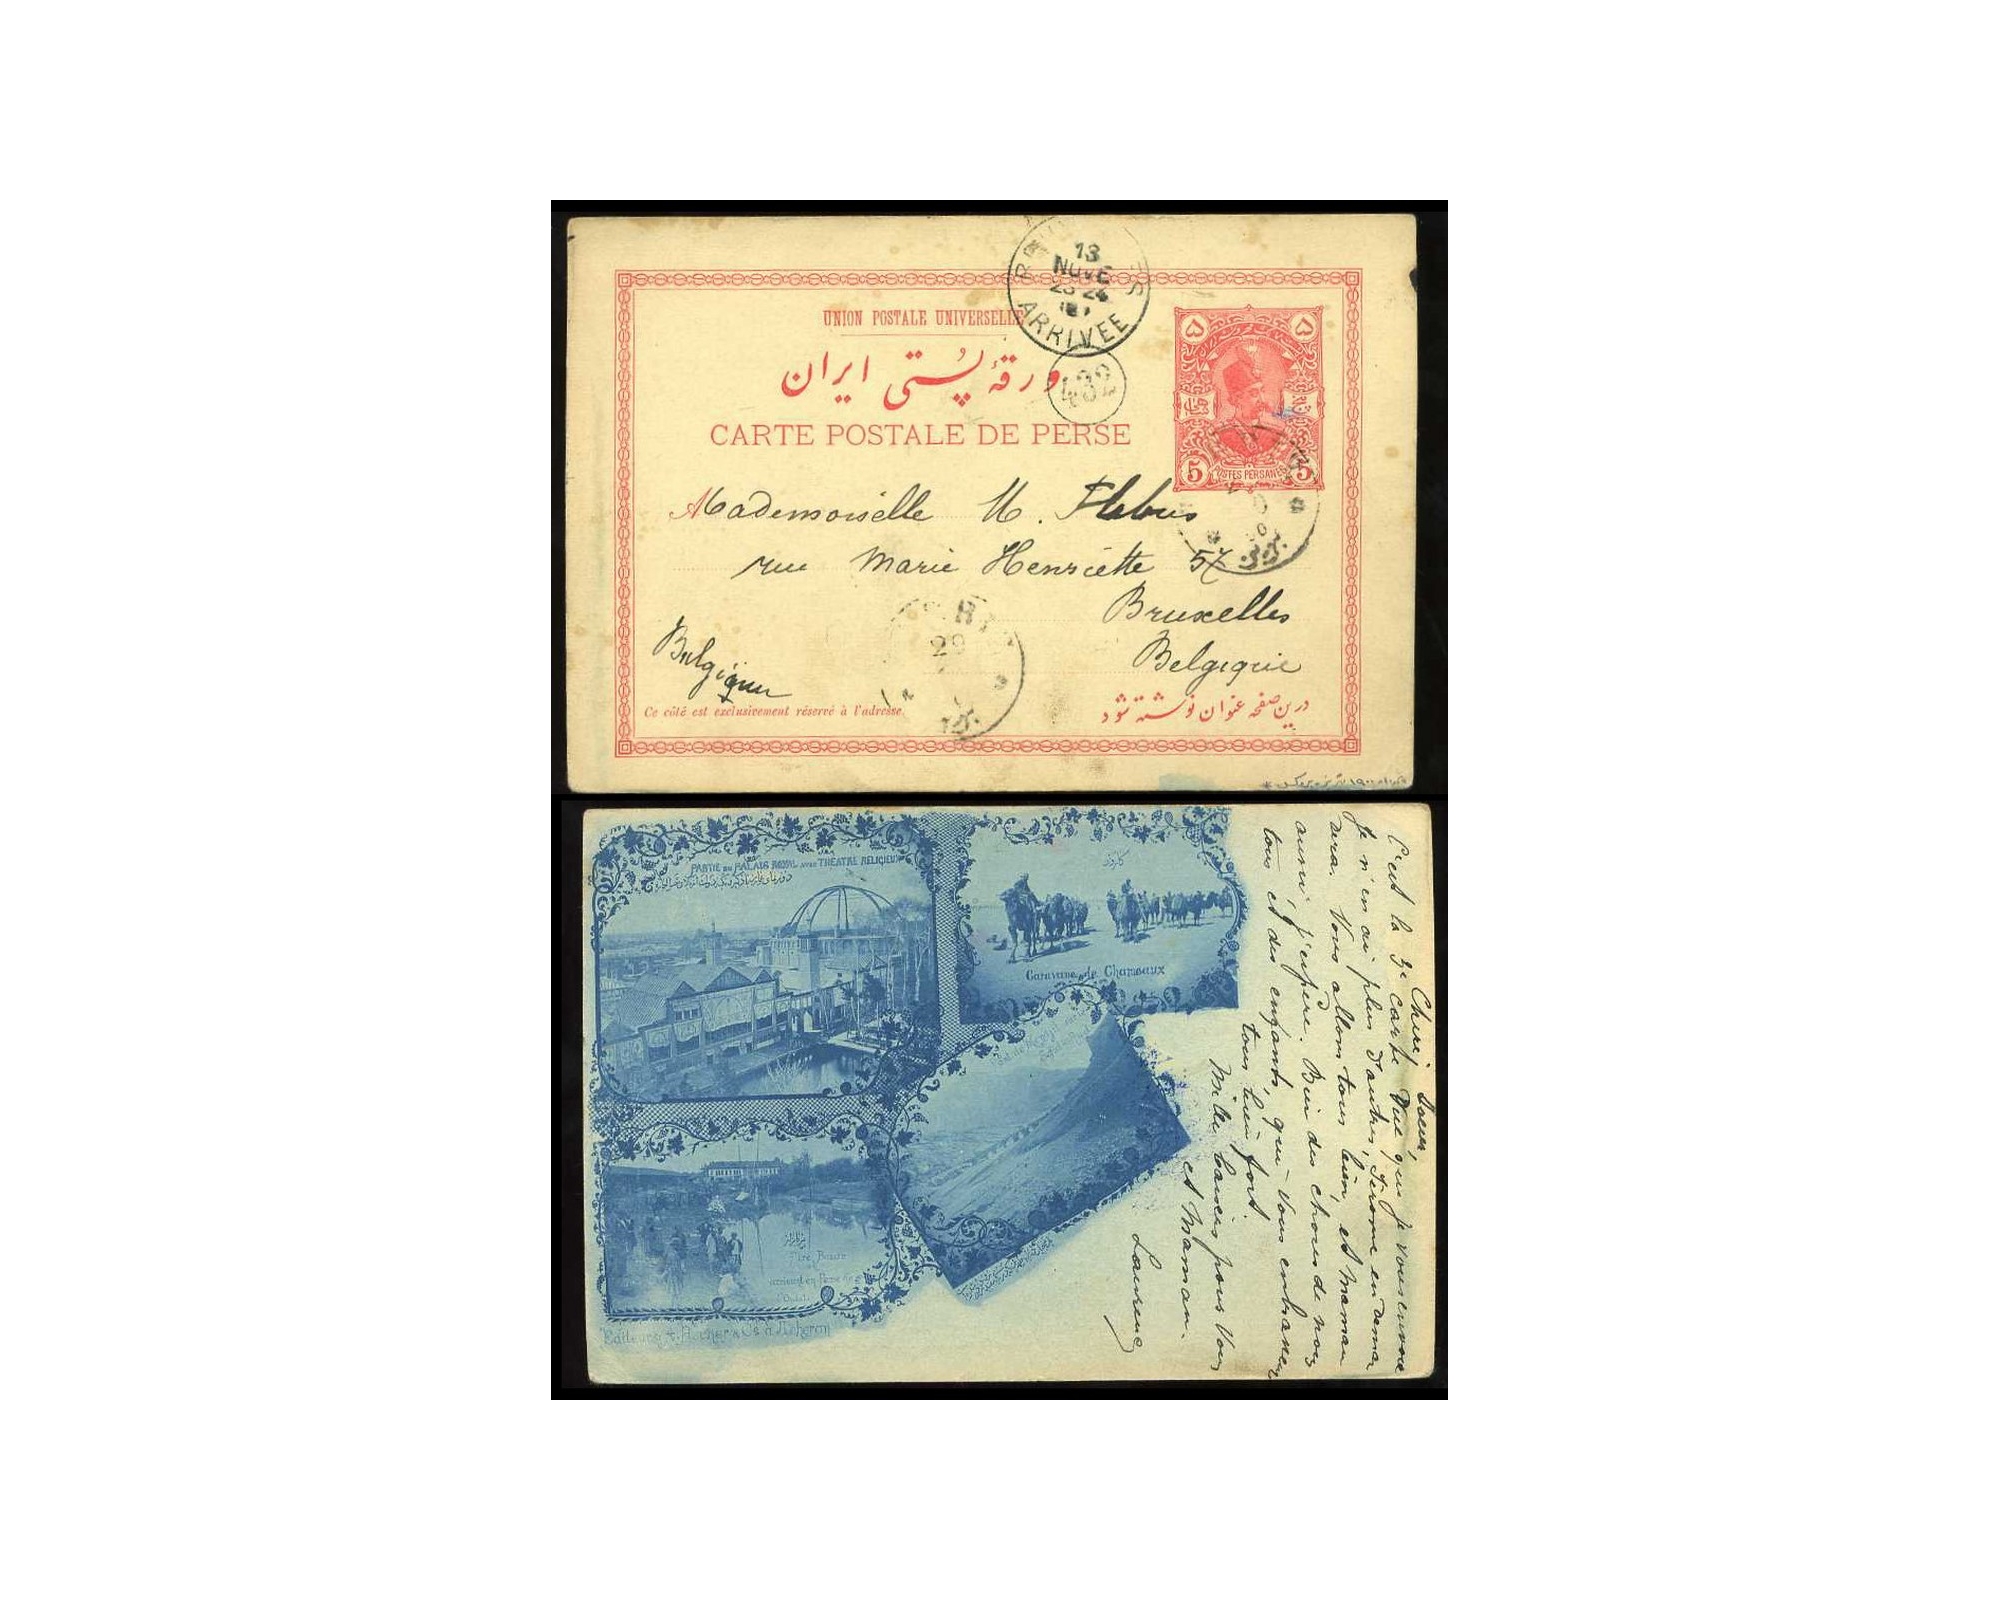 UNION POSTALE UNIVERSELLE
ورقهٔ پُستی ایران
CARTE POSTALE DE PERSE
13
NOVE
ARRIVEE
432
۵ ۵
5 POSTES PERSANES 5
Mademoiselle M. Flebus
rue Marie Henriette 57
Bruxelles
Belgique
Belgique
29
Ce côté est exclusivement réservé à l'adresse.
درین صفحه عنوان نوشته شود
PARTIE DU PALAIS ROYAL AVEC THEATRE RELIGIEUX
Caravane de Chameaux
Cheri Soeur,
C'est la 3e carte vue que je vous envoie
Je n'en ai plus d'autres, Jérome en deman
dera. Vous allons tous bien, et Maman
aussi, j'espère. Bien des choses de nous
tous et des enfants, que vous embrassez
tous bien fort.
Mille baisers pour vous
et Maman.